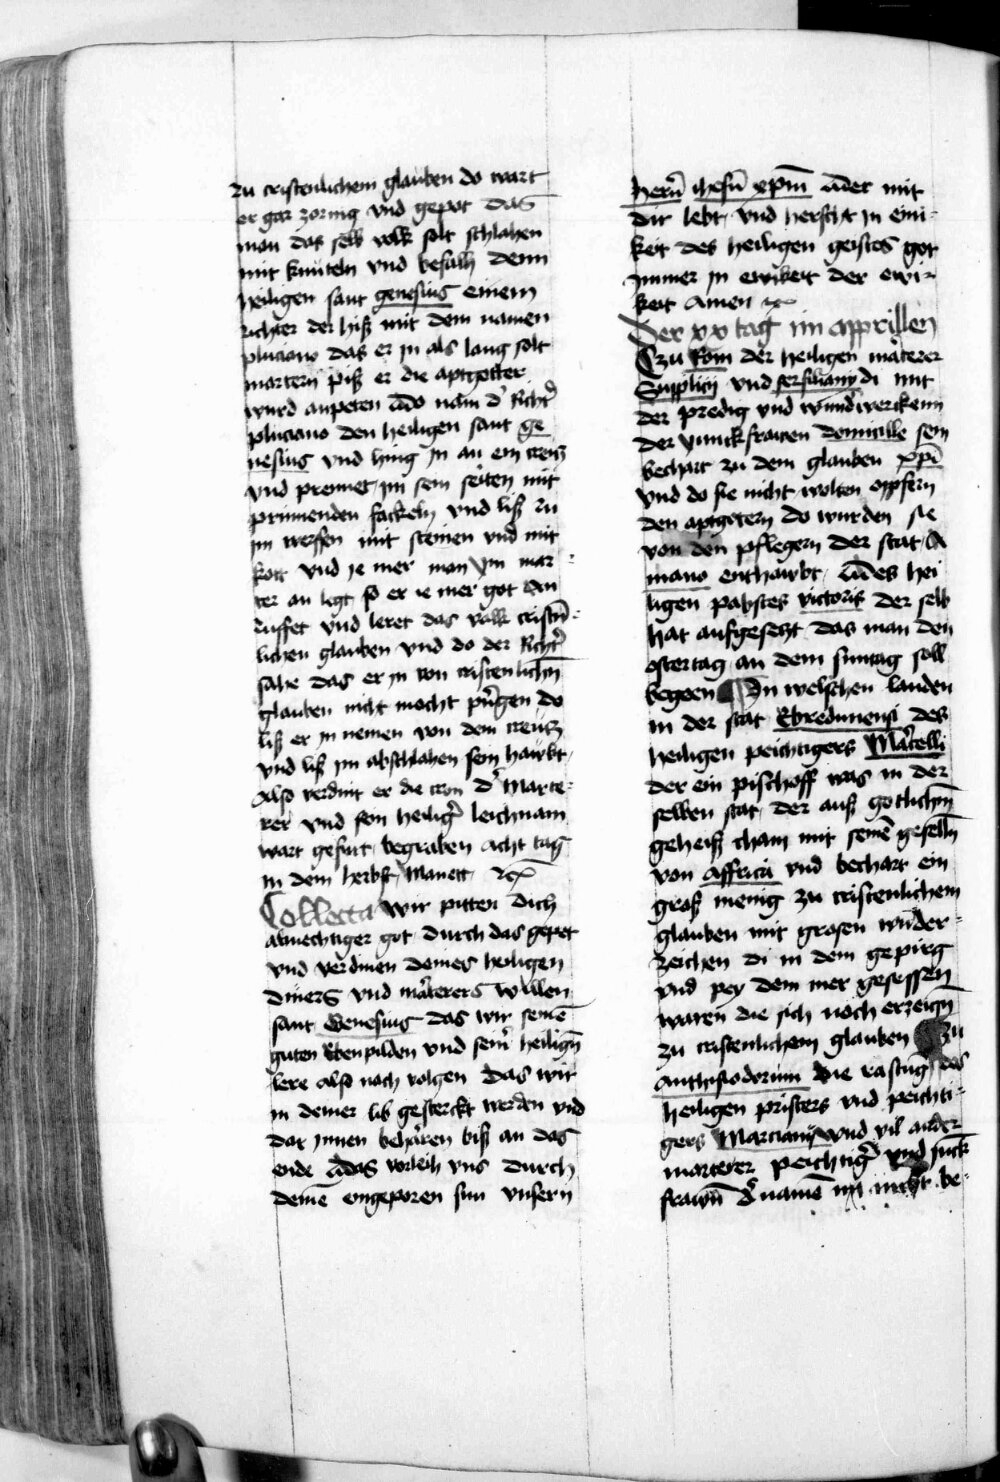 zu cristenlichem glauben do wart
er gar zornig vnd gepot das
man das selb volk solt schlahen
mit knuteln vnd befalh dem
heiligen sant genesius einem
richter der hiß mit dem namen
pluciano das er jn als lang solt
martern piß er die aptgötter
wurd anpeten Also nam d' Richt'
pluciano den heiligen sant ge
nesius vnd hing jn an ein creutz
vnd prennet jm sein seiten mit
prinnenden fackeln vnd liß zu
jm werffen mit steinen vnd mit
kott vnd je mer man ym mar
ter an legt, so er ie mer got an
ruffet vnd leret das volk cristen
lichen glauben vnd do der Richt'
sahe das er jn von cristenlichen
glauben nicht mocht pringen do
liß er jn nemen von dem creutz
vnd liß jm abschlahen sein haubt
Also verdint er die cron d' Marte
rer vnd sein heilig' leichnam
wart gefurt begraben acht tag
in dem herbst Manett
Collecta Wir pitten dich
almechtiger got durch das gepet
vnd verdinen deines heiligen
diners vnd marterers willen
sant Genesius das wir seinen
guten Ebenpilden vnd seiner heiligen
lere also noch volgen das wir
in deiner lib gesterckt werden vnd
dar jnnen beharen biß an das
ende das verleih vns durch
deinen eingeporen sun vnsern
hern ihesum xpm der mit
dir lebt vnd herscht jn eini
keit des heiligen geistes got
jmmer jn ewikeit der ewi
keit Amen
Der xx tag im apprillen
Czu Rom der heiligen marterer
Supplicij vnd serfiliany di mit
der predig vnd wunderwercken
der junckfrawen domicille sein
bechart zu dem glauben xpi
vnd do sie nicht wolten opfern
den aptgotern do wurden sie
von den pflegern der stat A
niano enthaubt, des hei
ligen pabstes victoris der selb
hat aufgesetzt das man den
ostertag an dem suntag soll
begeen In welschen landen
in der stat Ebredunensi des
heiligen peichtigers Marcelli
der ein pischoff was in der
selben stat der auß gotlichen
geheiß cham mit seinen gesellen
von Affrica vnd bechart ein
groß menig zu cristenlichem
glauben mit grosen wunder
zeichen di in dem gepirg
vnd pey dem mer gesessen
waren die sich noch erzeigen
zu cristenlichem glauben zu
Anthisiodorum die rastung des
heiligen pristers vnd peichti
gers Marciani vnd vil ander
marterer peichtig' vnd junck
frawen d' namen nicht be